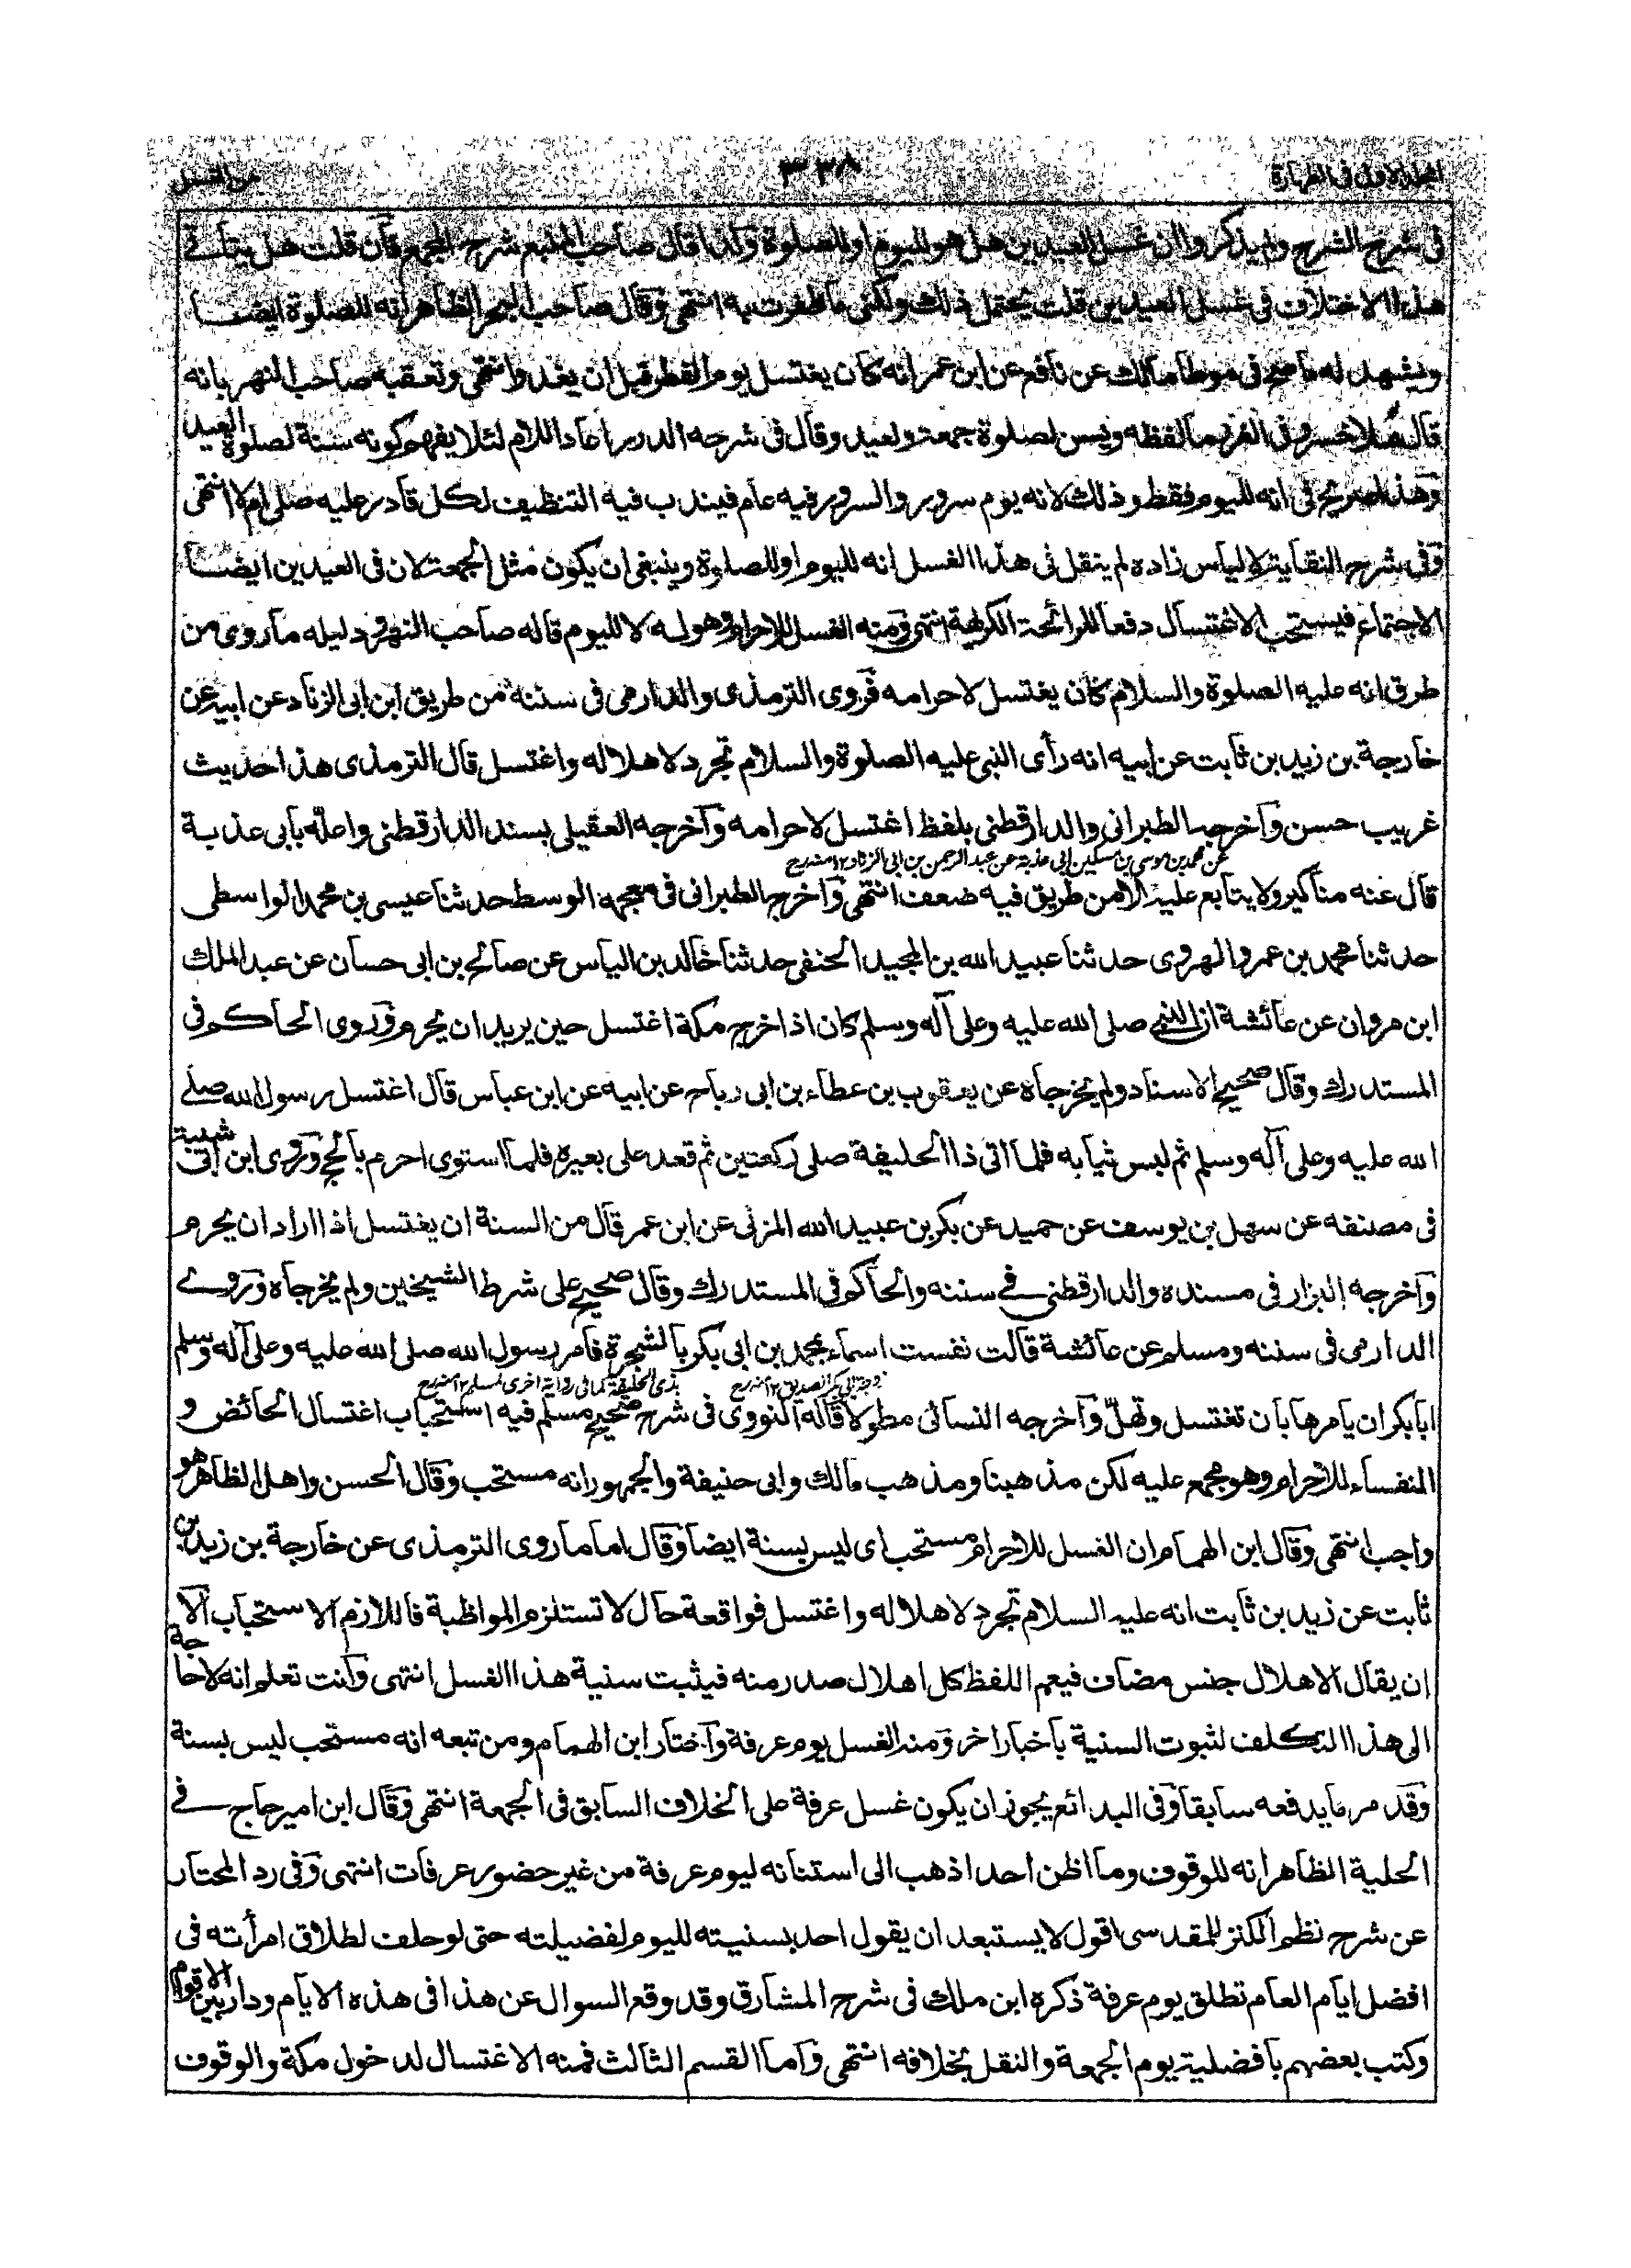 المجلد الاول فى الطهارة
٣٣٨
من الغسل
فى شرح الشرح ولم يذكروا ان غسل العيدين هل هو لليوم او للصلوة وكذا قال صاحب المنبع شرح المجمع فان قلت هل يتأتى
هذا الاختلاف فى غسل العيدين قلت يحتمل ذلك ولكنى ما ظفرت به انتهى وقال صاحب البحر الظاهر انه للصلوة ايضا
ويشهد له ما صح فى موطا مالك عن نافع عن ابن عمر انه كان يغتسل يوم الفطر قبل ان يغدو انتهى وتعقبه صاحب النهر بانه
قال ملا خسرو فى الغرر ما لفظه ويسن لصلوة جمعة ولعيد وقال فى شرحه الدرر اعاد اللام لئلا يفهم كونه سنة لصلوة العيد
وهذا صريح فى انه لليوم فقط وذلك لانه يوم سرور والسرور فيه عام فيندب فيه التنظيف لكل قادر عليه صلى ام لا انتهى
وفى شرح النقاية لالياس زاده لم ينقل فى هذا الغسل انه لليوم او للصلوة وينبغى ان يكون مثل الجمعة لان فى العيدين ايضا
الاجتماع فيستحب الاغتسال دفعا للرائحة الكريهة انتهى ومنه الغسل للاحرام وهو له لا لليوم قاله صاحب النهر ودليله ما روى من
طرق انه عليه الصلوة والسلام كان يغتسل لاحرامه فروى الترمذى والدارمى فى سننه من طريق ابن ابى الزناد عن ابيه عن
خارجة بن زيد بن ثابت عن ابيه انه رأى النبى عليه الصلوة والسلام تجرد لاهلاله واغتسل قال الترمذى هذا حديث
غريب حسن وآخرجه الطبرانى والدارقطنى بلفظ اغتسل لاحرامه وآخرجه العقيلى بسند الدارقطنى واعله بابى عذبة
عن محمد بن موسى بن مسكين ابى عذبة عن عبد الرحمن بن ابى الزناد ١٢ منه رح
قال عنه مناكير ولا يتابع عليه الا من طريق فيه ضعف انتهى وآخرجه الطبرانى فى معجمه الوسط حدثنا عيسى بن محمد الواسطى
حدثنا محمد بن عمرو الهروى حدثنا عبيد الله بن المجيد الحنفى حدثنا خالد بن الياس عن صالح بن ابى حسان عن عبد الملك
ابن مروان عن عائشة ان النبى صلى الله عليه وعلى آله وسلم كان اذا خرج مكة اغتسل حين يريد ان يحرم وروى الحاكم فى
المستدرك وقال صحيح الاسناد ولم يخرجاه عن يعقوب بن عطاء بن ابى رباح عن ابيه عن ابن عباس قال اغتسل رسول الله صلى
الله عليه وعلى آله وسلم ثم لبس ثيابه فلما اتى ذا الحليفة صلى ركعتين ثم قعد على بعيره فلما استوى احرم بالحج وروى ابن ابى شيبة
فى مصنفه عن سهل بن يوسف عن حميد عن بكر بن عبيد الله المزنى عن ابن عمر قال من السنة ان يغتسل اذا اراد ان يحرم
وآخرجه البزار فى مسنده والدارقطنى فى سننه والحاكم فى المستدرك وقال صحيح على شرط الشيخين ولم يخرجاه وروى
الدارمى فى سننه ومسلم عن عائشة قالت نفست اسماء بمحمد بن ابى بكر بالشجرة فامر رسول الله صلى الله عليه وعلى آله وسلم
زوجة ابى بكر الصديق ١٢ منه رح
بذى الحليفة كما فى رواية اخرى لمسلم ١٢ منه رح
ابا بكر ان يامرها بان تغتسل وتهلّ وآخرجه النسائى مطولا قاله النووى فى شرح صحيح مسلم فيه استحباب اغتسال الحائض و
النفساء للاحرام وهو مجمع عليه لكن مذهبنا ومذهب مالك وابى حنيفة والجمهور انه مستحب وقال الحسن واهل الظاهر هو
واجب انتهى وقال ابن الهمام ان الغسل للاحرام مستحب اى ليس بسنة ايضا وقال اما ما روى الترمذى عن خارجة بن زيد بن
ثابت عن زيد بن ثابت انه عليه السلام تجرد لاهلاله واغتسل فواقعة حال لا تستلزم المواظبة فاللازم الاستحباب الا
ان يقال الاهلال جنس مضاف فيعم اللفظ كل اهلال صدر منه فيثبت سنية هذا الغسل انتهى وآنت تعلم انه لا حاجة
الى هذا التكلف لثبوت السنية باخبار اخر ومنه الغسل يوم عرفة وآختار ابن الهمام ومن تبعه انه مستحب ليس بسنة
وقد مر ما يدفعه سابقا وفى البدائع يجوز ان يكون غسل عرفة على الخلاف السابق فى الجمعة انتهى وقال ابن امير حاج فى
الحلية الظاهر انه للوقوف وما اظن احدا ذهب الى استنانه ليوم عرفة من غير حضور عرفات انتهى وفى رد المحتار
عن شرح نظم الكنز للمقدسى اقول لا يستبعد ان يقول احد بسنيته لليوم لفضيلته حتى لو حلف لطلاق امرأته فى
افضل ايام العام تطلق يوم عرفة ذكره ابن ملك فى شرح المشارق وقد وقع السوال عن هذا فى هذه الايام ودار بين الاقوام
وكتب بعضهم بافضلية يوم الجمعة والنقل بخلافه انتهى وآما القسم الثالث فمنه الاغتسال لدخول مكة والوقوف